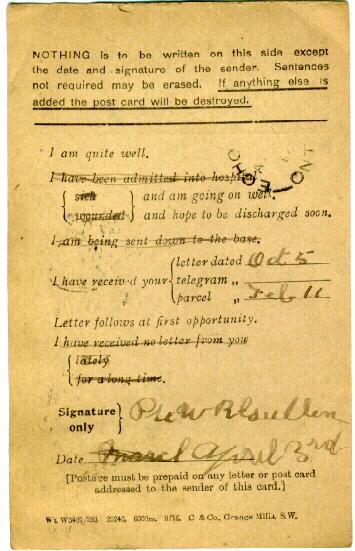 NOTHING is to be written on this side except
the date and signature of the sender. Sentences
not required may be erased. If anything else is
added the post card will be destroyed.
I am quite well.
I have been admitted into hospital
sick and am going on well.
wounded and hope to be discharged soon.
I am being sent down to the base.
I have received your
letter dated Oct 5
telegram „
parcel „ Feb 11
Letter follows at first opportunity.
I have received no letter from you
lately
for a long time.
Signature only Pte W R
Date March April 3rd
[Postage must be prepaid on any letter or post card
addressed to the sender of this card.]
Wt. W3497/293 29246. 6000m. 9/16. C & Co., Grange Mills, S.W.
ECHO
ONT